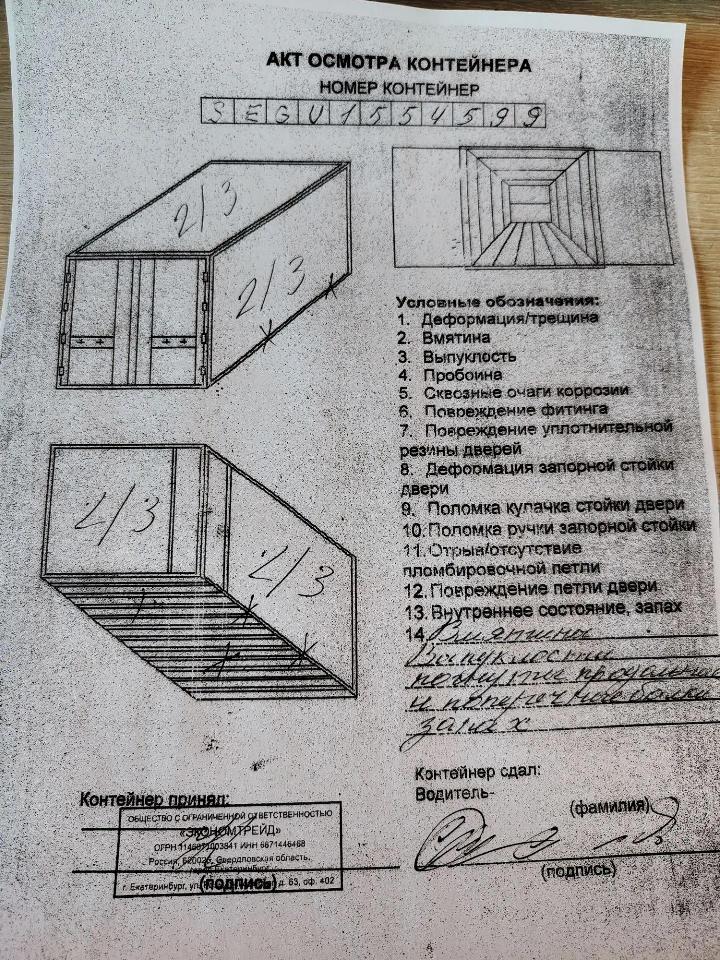 АКТ ОСМОТРА КОНТЕЙНЕРА
НОМЕР КОНТЕЙНЕР
SEGU1554599
2/3
2/3
2/3
2/3
Условные обозначения:
1. Деформация/трещина
2. Вмятина
3. Выпуклость
4. Пробоина
5. Сквозные очаги коррозии
6. Повреждение фитинга
7. Повреждение уплотнительной
резины дверей
8. Деформация запорной стойки
двери
9. Поломка кулачка стойки двери
10. Поломка ручки запорной стойки
11. Отрыв/отсутствие
пломбировочной петли
12. Повреждение петли двери
13. Внутреннее состояние, запах
14. Вмятина
Выпуклости
погнуты продольн
и поперечные балки
запах
Контейнер принял:
ОБЩЕСТВО С ОГРАНИЧЕННОЙ ОТВЕТСТВЕННОСТЬЮ
«ЭКОНОМТРЕЙД»
ИНН 6671446468
Россия, Свердловская область,
г. Екатеринбург, ул. д. 63, оф. 402
(подпись)
Контейнер сдал:
Водитель-
(фамилия)
(подпись)